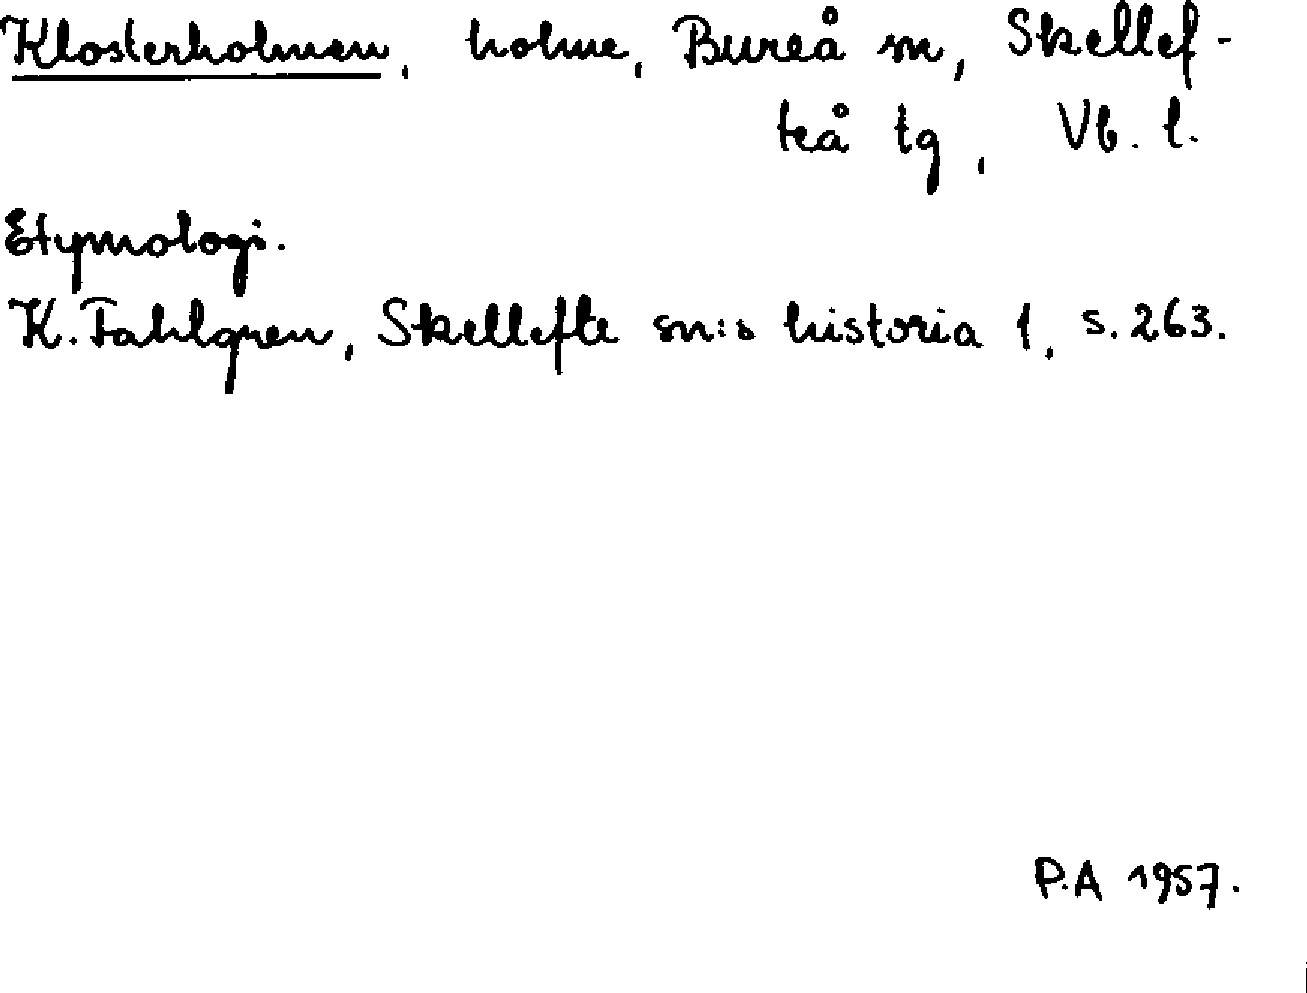 Klosterholmen, holme, Bureå sn, Skellef-
teå tg, Vb. l.
Etymologi.
K. Fahlgren, Skellefte sn:s historia 1, s. 263.
P.A 1957.